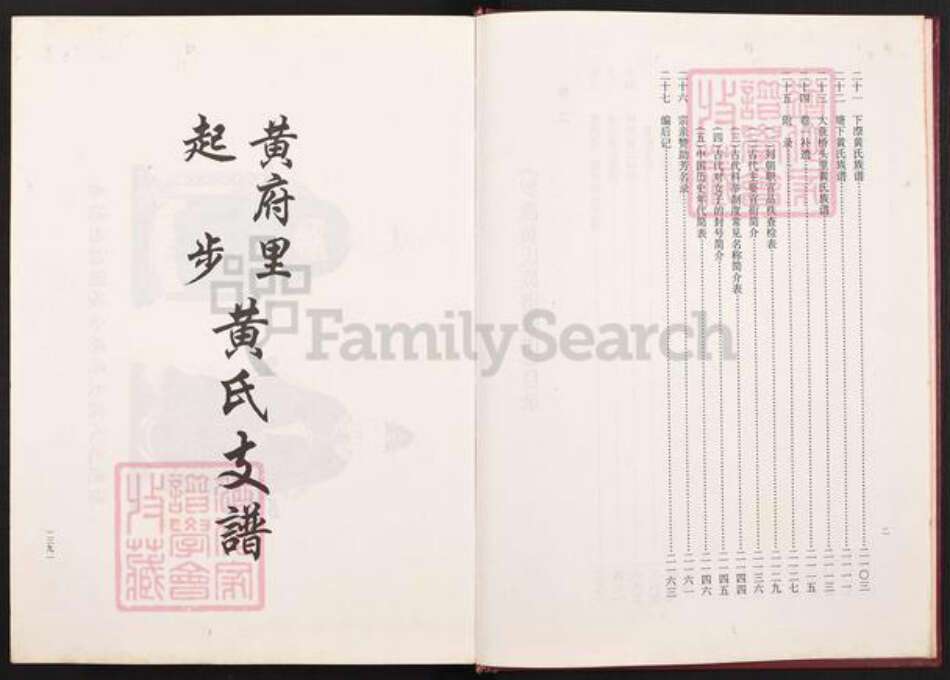 二十一 下漈黄氏族谱 二一〇三
二十二 塘下黄氏族谱 二一一一
二十三 大董桥头里黄氏族谱 二一一三
二十四 卷 补遗 二一一五
二十五 附 录 二一二七
(一)列朝职官品秩查检表 二一二九
(二)古代主要官衔简介 二一三六
(三)古代科举制度常见名称简介表 二一四四
(四)古代对女子的封号简介 二一四五
(五)中国历史年代简表 二一四六
二十六 宗亲赞助芳名录 二一六一
二十七 编后记 二一六三
二
黄府里
起步
黄氏支谱
一三九一
譜學會
收藏
FamilySearch